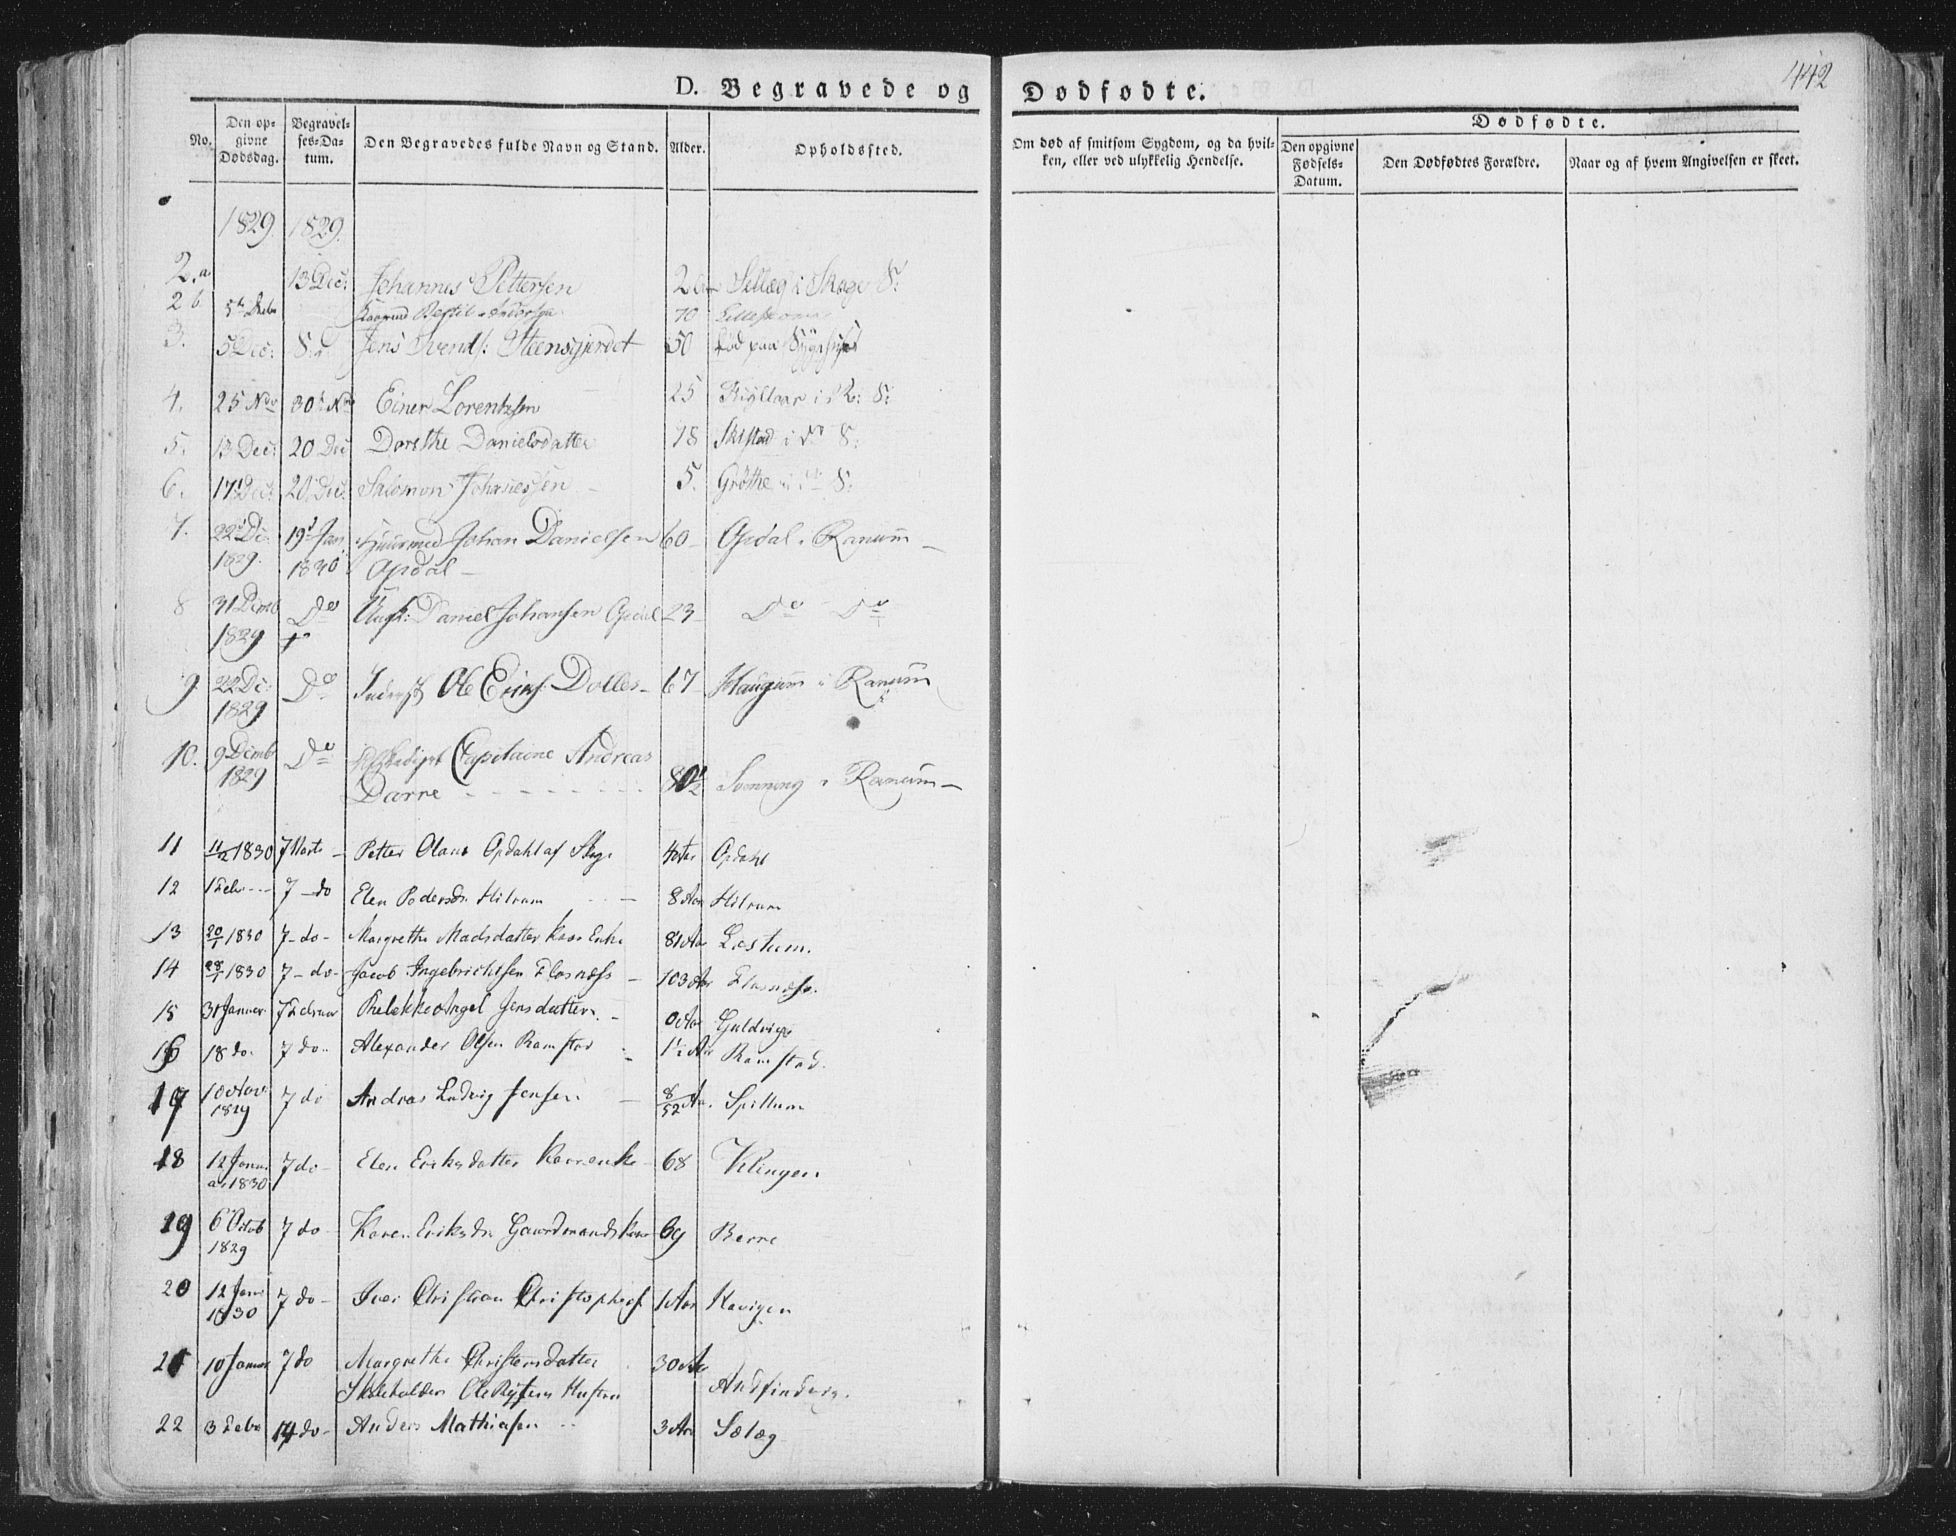 442
D. Begravede og Dødfødte.
No. Den opgivne Dødsdag. Begravelses-Datum. Den Begravedes fulde Navn og Stand. Alder. Opholdssted. Om død af smitsom Sygdom, og da hvilken, eller ved ulykkelig Hendelse. Den opgivne Fødsels-Datum. Den Dødfødtes Forældre. Naar og af hvem Angivelsen er skeet.
Dødfødte.
1829 1829.
2.a 13 Dec: Johannes Pettersen Sellæg i Skage S:
2 b 70
3. 5 Dec: 8. Jens Svends: Steensgjerdet 50 død paa
4. 25 Nov 30 Nov Einer Lorentzsen 25 i R: S:
5. 13 Dec: 20 Dec Dorethe Danielsdatter 78 Skistad i do S:
6. 17 Dec: 20 Dec: Salomon Johannessen 5. Grøthe i do S:
7. 22 Dc: 1829. 19 Jan 1830 Huusmd Johan Danielsen Opdal 60 Opdal i Ranum
8 31 Decmb 1829 Do Ungk: Daniel Johansen Opdal 23 Do Do
9 22 Dc: 1829 Do Inderst Ole Eriks: Dolles 67 Haugum i Ranum
10. 9 Decmb 1829 Do Capitaine Andreas
Darre 80 1/2 Svenning i Ranum
11 11/2 1830 7 Marts Petter Olaus Opdahl af Skage 4 Aar Opdahl
12 1 Febr 7 do Elen Pedersdr Hilrum 8 Aar Hilrum
13 20/1 1830 7 do Margrethe Madsdatter Enke 81 Aar Løstum.
14 28/1 1830 7 do Jacob Ingebrichtsen Flasnæss 103 Aar Flasnæss.
15 31 Januar 7 Februar Angel Jensdatter. 0 Aar Guldvige
16 18 do. 7 do. Alexander Olsen Ramstad 1 1/2 Aar Ramstad.
17 10 Nov 1829 7 do Andreas Ludvig Jensen 8/52 Aar. Spillum
18 12 Januar 1830 7 do Elen Eriksdatter 68 Klingen
19 6 Octob 1829 7 do Karen Eriksdr Gaardmandskone 69 Berre
20 12 Janu 1830 7 do Iver Christian Christophers: 1 Aar Havigen
21 10 Januar 7 do Margrethe Christensdatter 30 Aar
Skoleholder Ole Hustru Andfindvig.
22 3 Febr 14 do Anders Mathiasen 3 Aar Sælæg